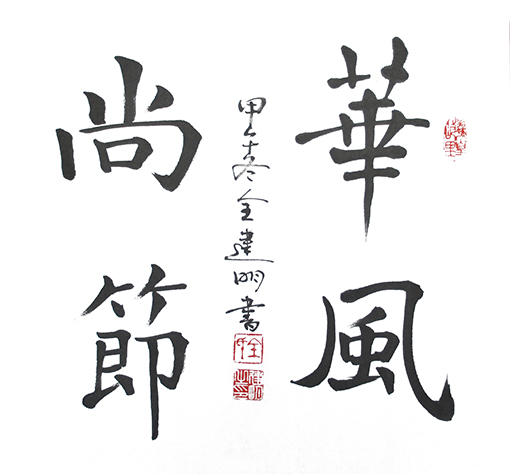 華風
尚節
甲午冬全建明書